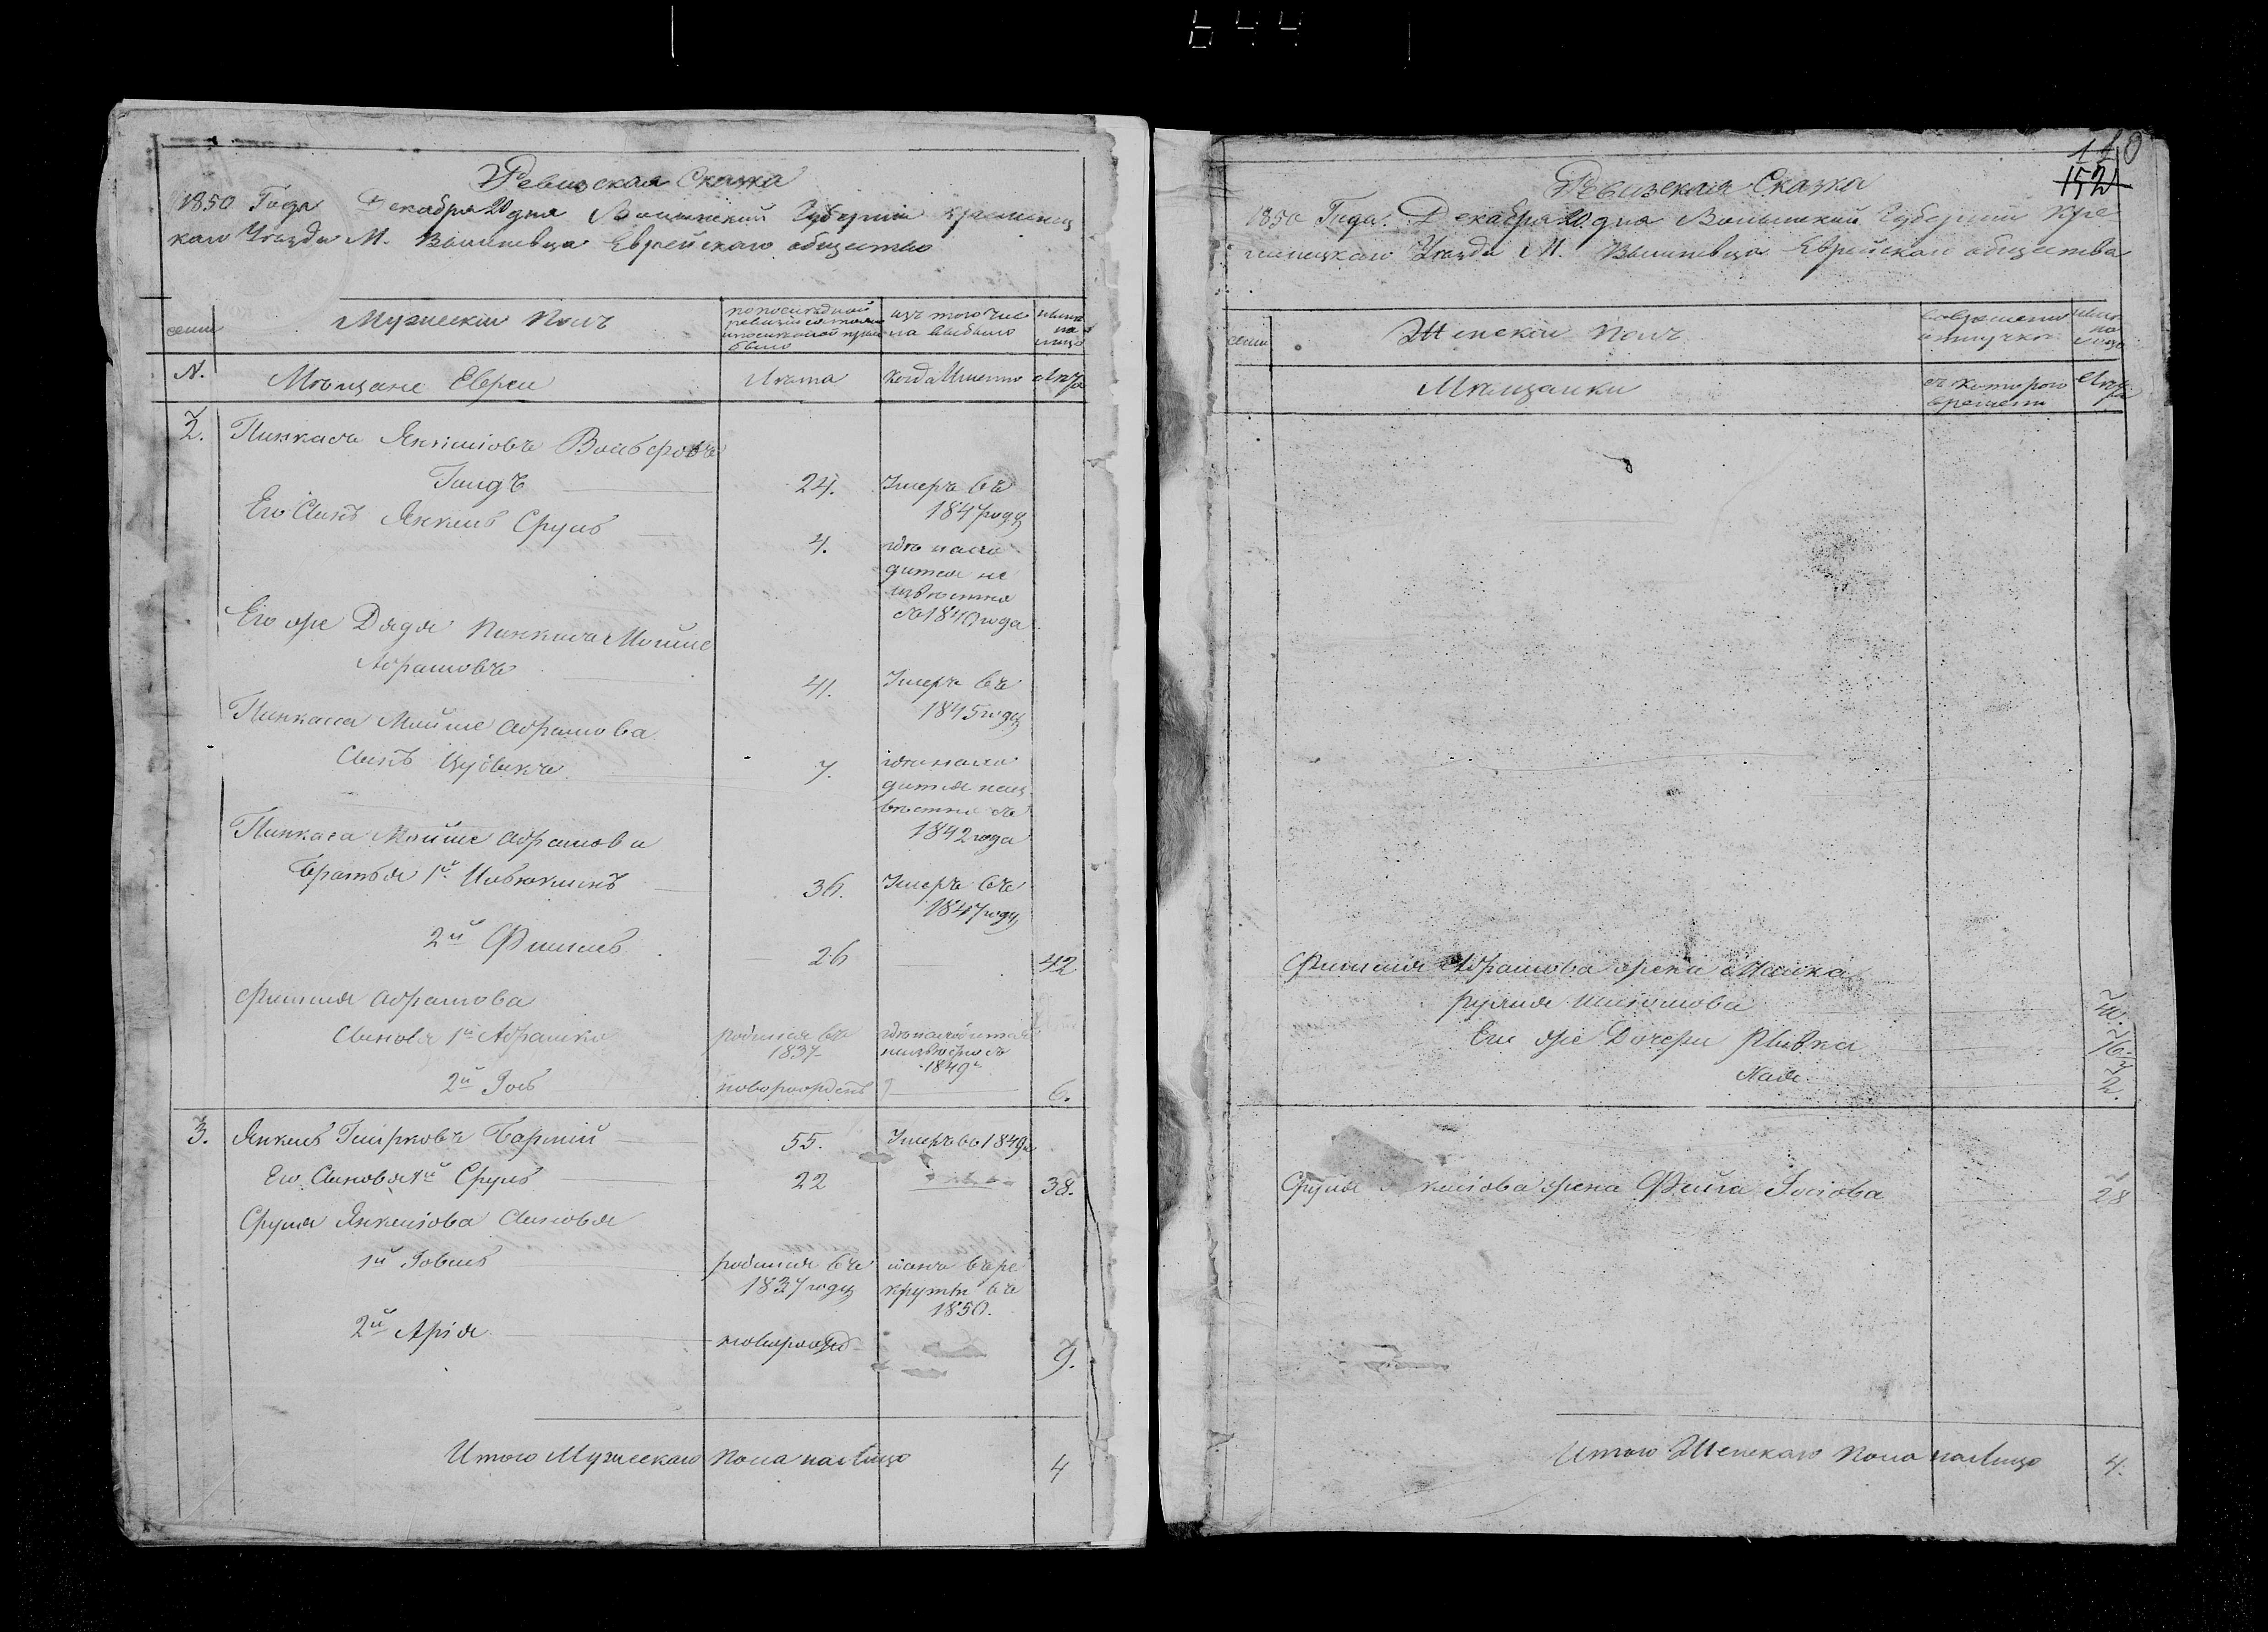 644
Ревизская Сказка
1850 Года Декабря 20 дня Волынской Губернии Кременец
каго Уезда М. Вишневца Еврейскаго общества
семьи
Мужескій полъ
по последней
ревизіи состояло
и после оной прибыло
изъ того числа выбыло
ныне на лицо
N.
Мещане Евреи
Лета
когда Именно
Лета
2.
Пинкасъ Янкелiовъ Вольфровъ
Гольдъ
24.
Умеръ въ
1847 году
Его Сынъ Янкель Сруль
4.
где нахо
дится не
известно
съ 1840 года
Его же Дядя Пинкасъ Мойше
Абрамовъ
41.
Умеръ въ
1845 году
Пинкаса Мойше Абрамова
Сынъ
7.
где нахо
дится неиз
вестно съ
1842 года
Пинкаса Мойше Абрамова
братья 1й
36.
Умеръ въ
1847 году
2й Фишель
26
42
Фишеля Абрамова
Сыновья 1й Абрамко
родился въ
1837
где находится
неизвестно съ
1849 г
2й Іось
новорожденъ
6.
3.
Янкель Гершковъ
55.
Умеръ въ 1849 г
Его Сыновья 1й Сруль
22
38.
Сруля Янкелiова Сыновья
1й Іовель
родился въ
1837 году
взятъ въ ре
круты въ
1850.
2й Арія
новорожд
9.
Итого Мужескаго пола на лицо
4
110
152
Ревизская Сказка
1850 Года Декабря 20 дня Волынской Губернии Кре
менецкаго Уезда М. Вишневца Еврейскаго общества
семьи
Женскій полъ
во временной
отлучке
ныне
на
лицо
Мещанки
съ котораго
времени
Лета
Фишеля Абрамова жена
40.
Его же Дочери Ривка
16.
Хая
2.
Сруля Янкелiова жена Фейга Іосiова
28
Итого Женскаго пола на лицо
4.